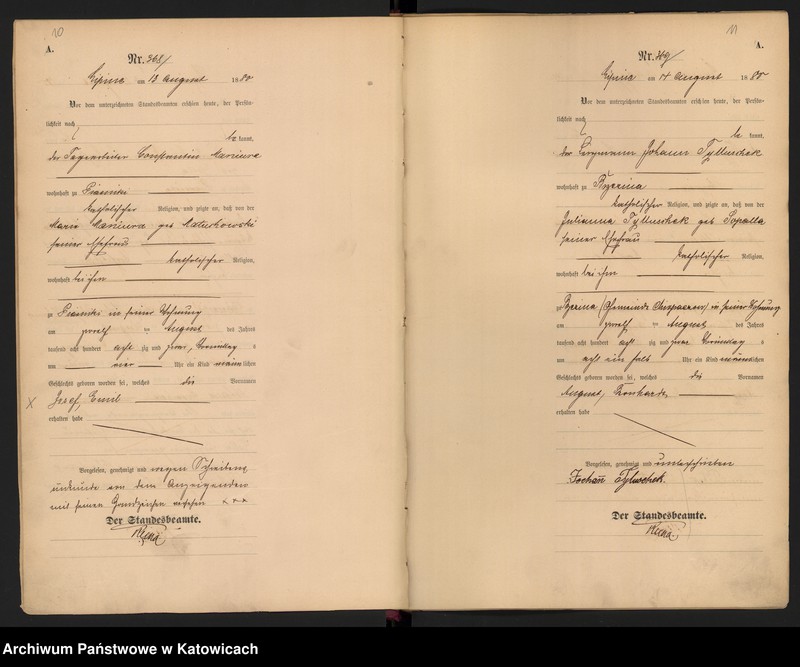 10
A.
Nr. 368/
Lipine am 13 August 1880
Vor dem unterzeichneten Standesbeamten erschien heute, der Persön-
lichkeit nach
be kannt,
der Tagearbeiter Constantin
wohnhaft zu Piasniki
katholischer Religion, und zeigte an, daß von der
Marie geb
seiner Ehefrau
katholischer Religion,
wohnhaft bei ihm
zu Piasniki in seiner Wohnung
am August des Jahres
tausend acht hundert acht zig und Vormittag s
um vier Uhr ein Kind männlichen
Geschlechts geboren worden sei, welches die Vornamen
Josef, Emil
erhalten habe
X
Vorgelesen, genehmigt und wegen Schreibens
unkunde von dem Anzeigenden
mit seinen Handzeichen versehen + + +
Der Standesbeamte.
11
A.
Nr. 369/
Lipine am 14 August 1880
Vor dem unterzeichneten Standesbeamten erschien heute, der Persön-
lichkeit nach
be kannt,
der Bergmann Johann Tylluschek
wohnhaft zu
katholischer Religion, und zeigte an, daß von der
Julianna Tylluschek geb Sopalla
seiner Ehefrau
katholischer Religion,
wohnhaft bei ihm
zu (Gemeinde Chropaczow) in seiner Wohnung
am August des Jahres
tausend acht hundert acht zig und Vormittag
um acht ein halb Uhr ein Kind männlichen
Geschlechts geboren worden sei, welches die Vornamen
August,
erhalten habe
Vorgelesen, genehmigt und unterschrieben
Johann Tyluschek.
Der Standesbeamte.
Archiwum Państwowe w Katowicach